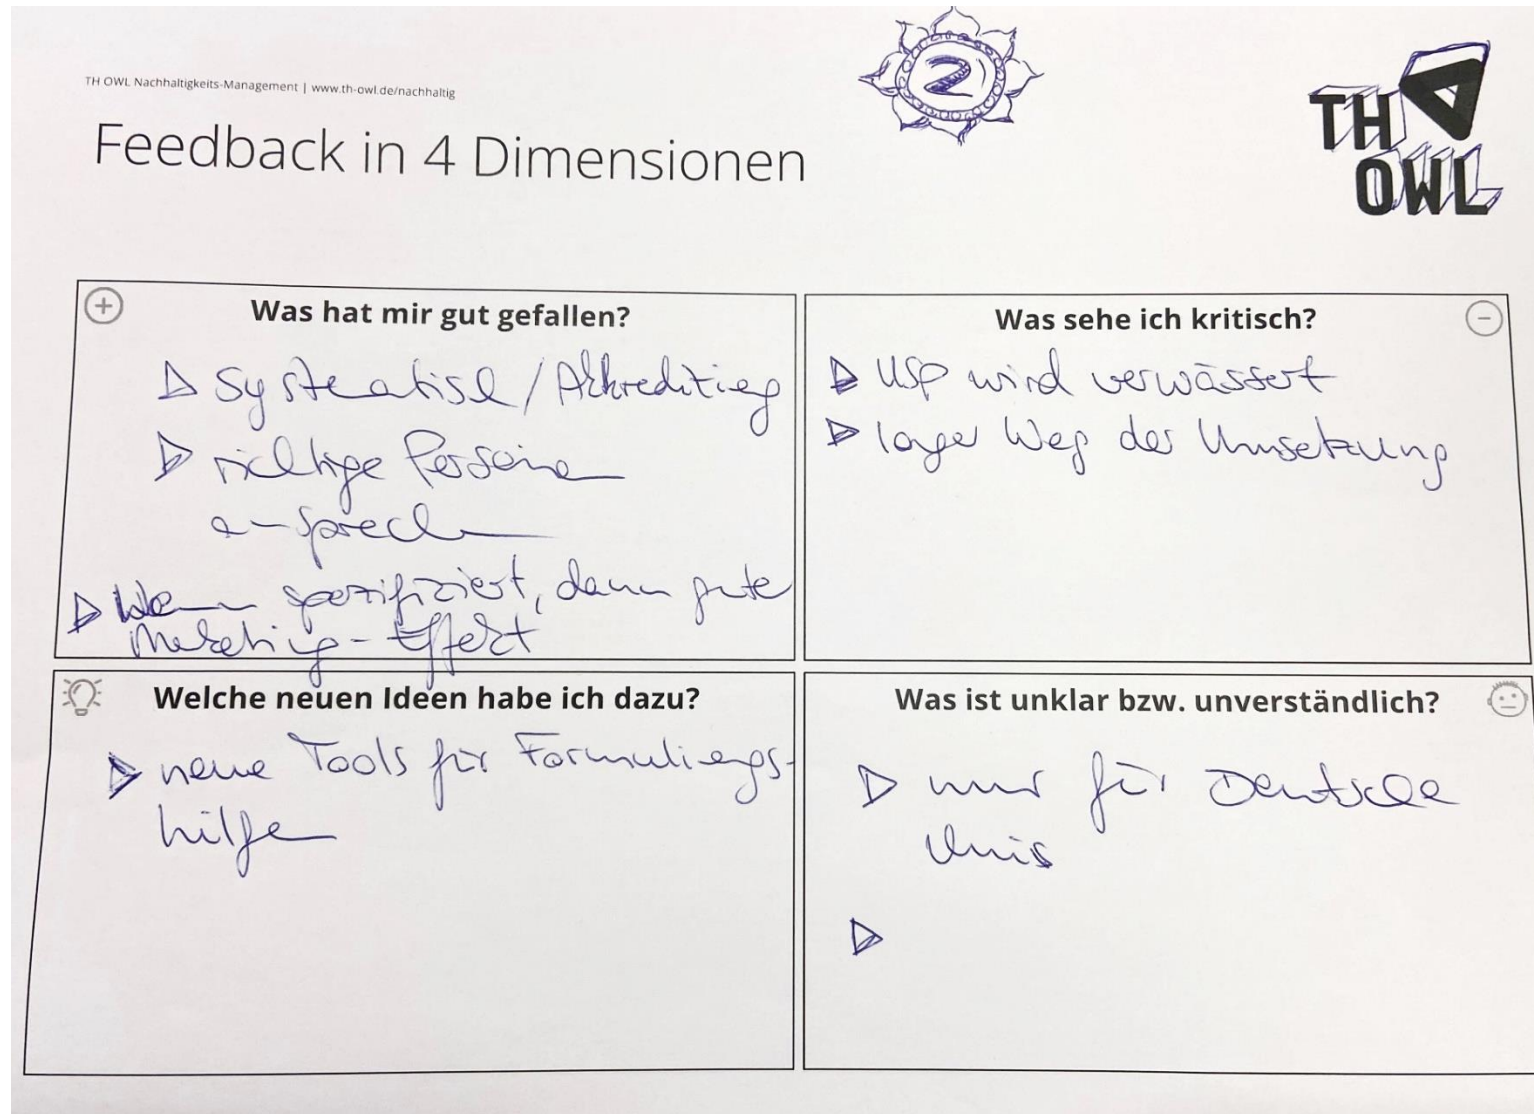 TH OWL Nachhaltigkeits-Management | www.th-owl.de/nachhaltig
2
TH
OWL
Feedback in 4 Dimensionen
Was hat mir gut gefallen?
Systematisch / Akkreditierung
richtige Personen
ansprechen
Wenn spezifiziert, dann gute
Marketing-Effekt
Was sehe ich kritisch?
USP wird verwässert
langer Weg der Umsetzung
Welche neuen Ideen habe ich dazu?
neue Tools für Formulierungs-
hilfen
Was ist unklar bzw. unverständlich?
nur für Deutsche
Unis